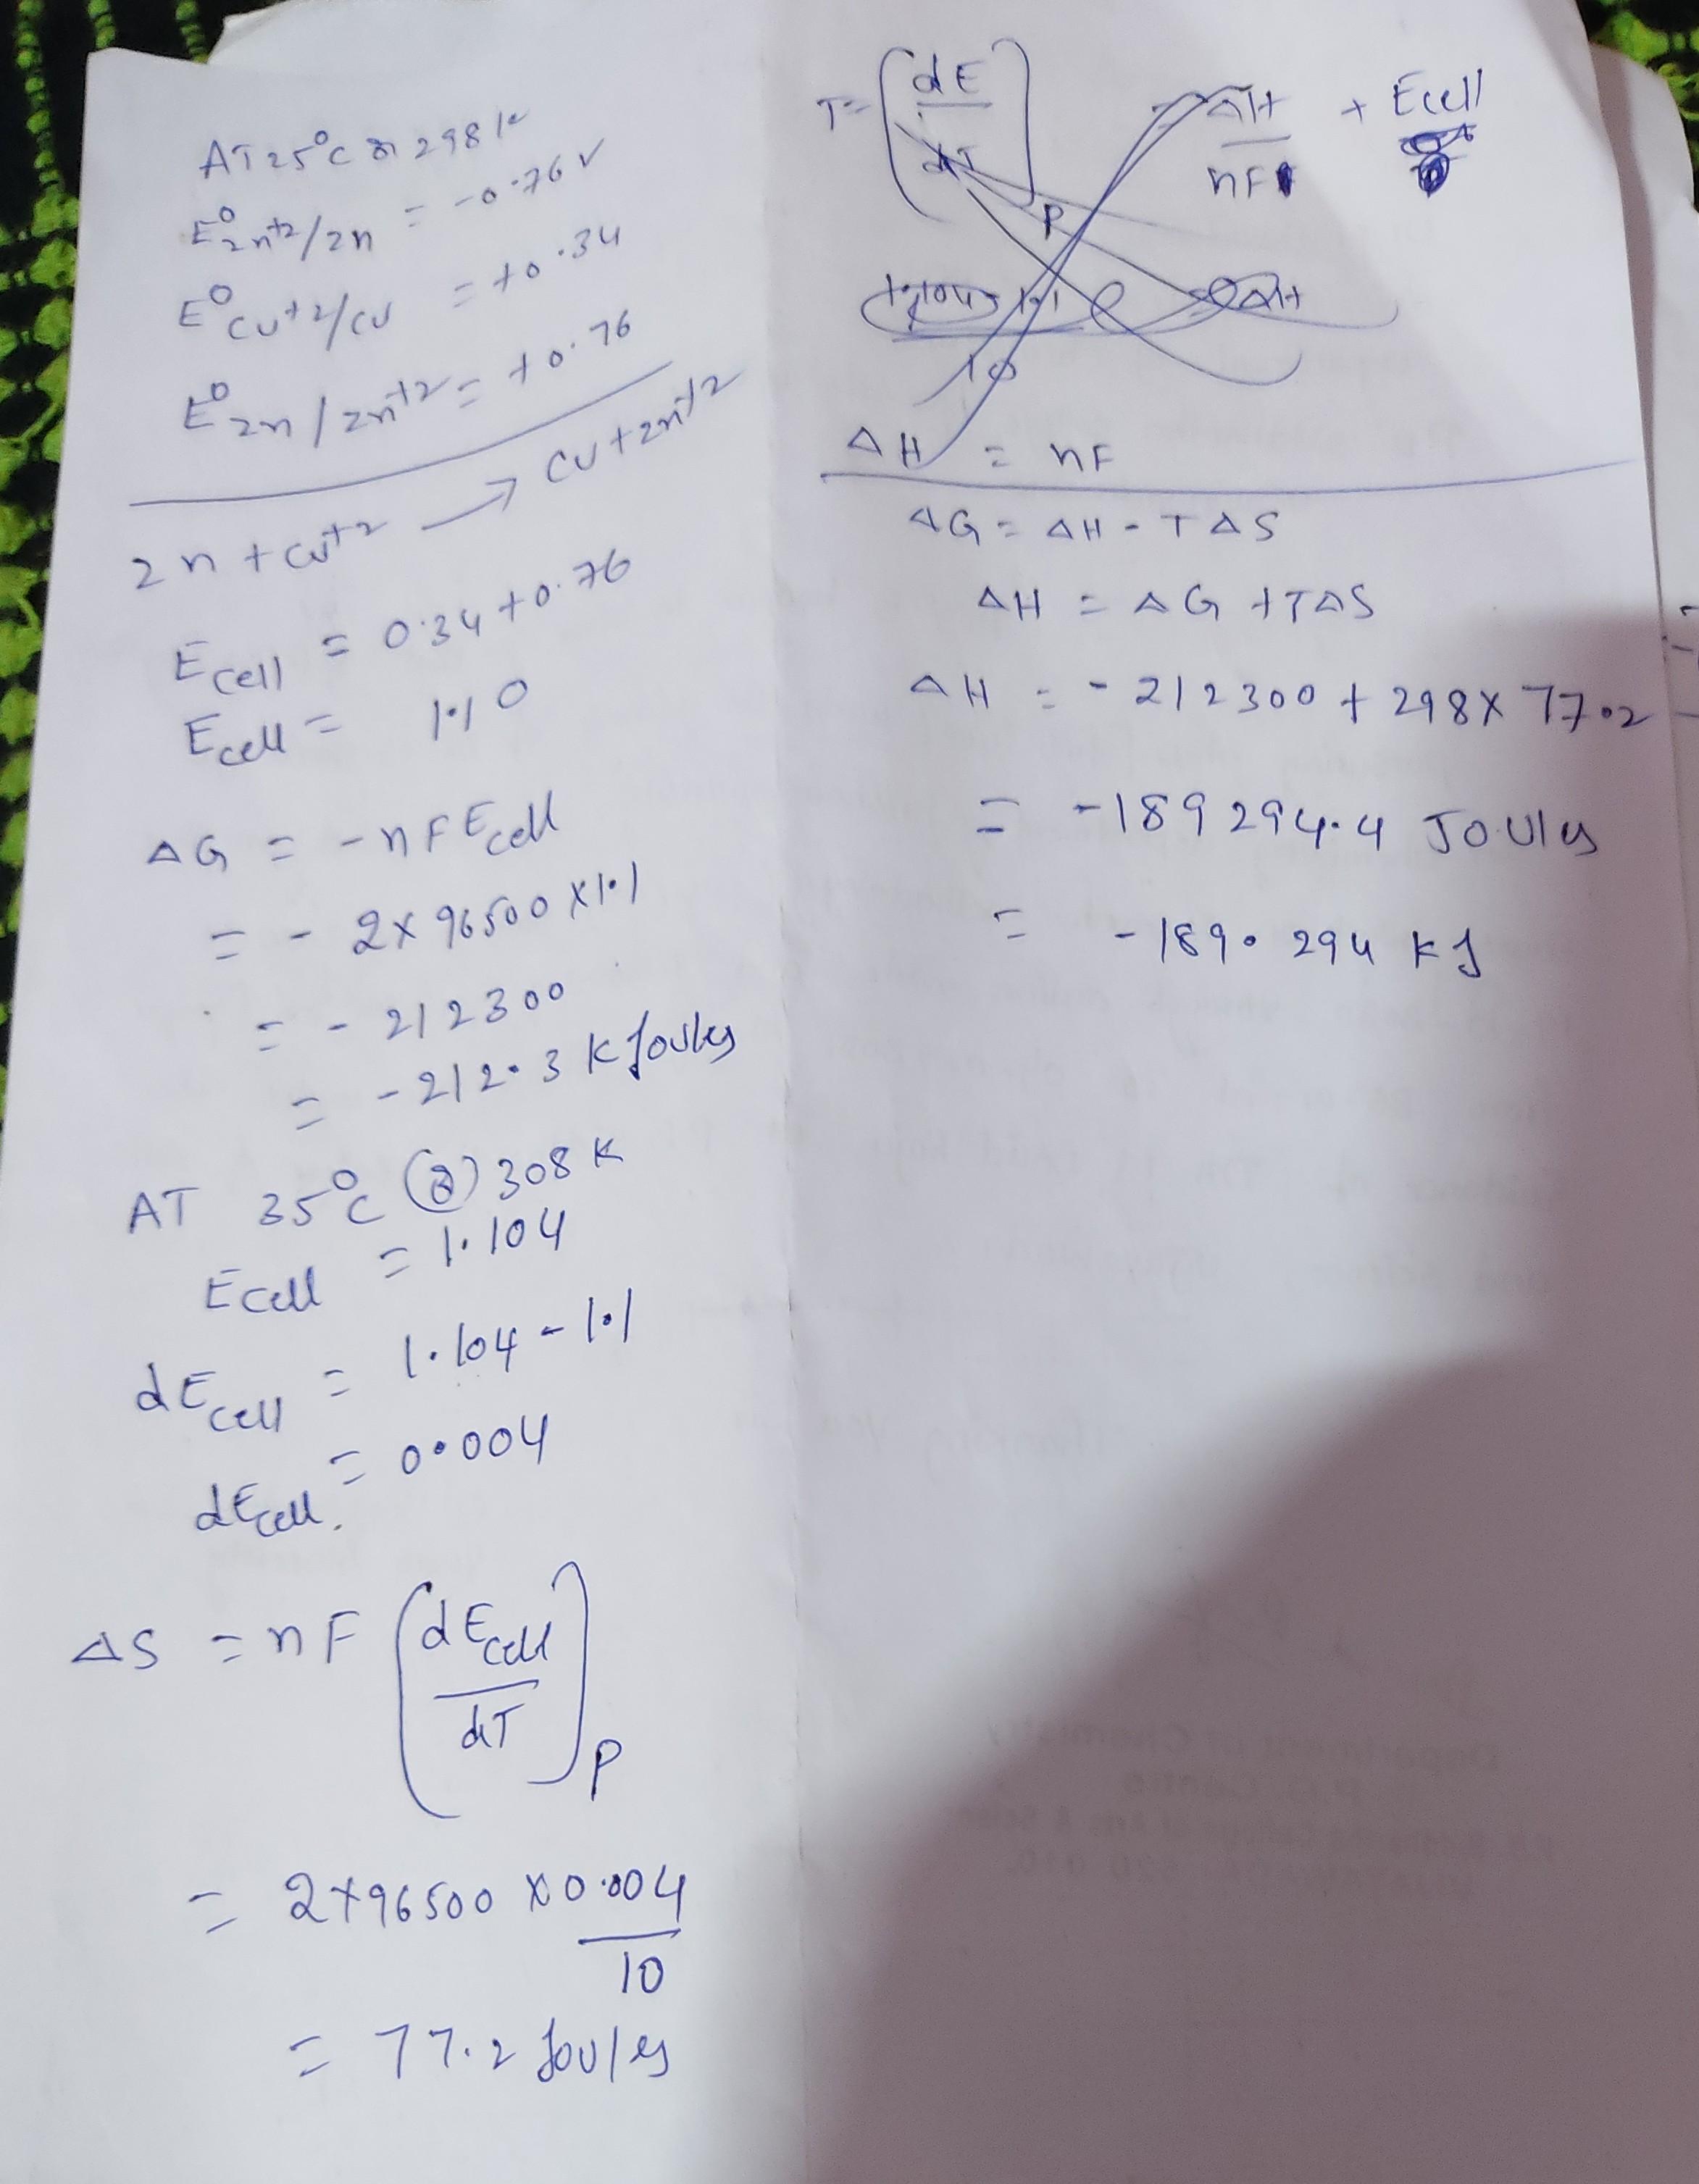 AT 25°C or 298 K
E°Zn+2/Zn = -0.76 V
E°Cu+2/Cu = +0.34
E°Zn/Zn+2 = +0.76
Zn + Cu+2 → Cu + Zn+2
Ecell = 0.34 + 0.76
Ecell = 1.10
ΔG = -nF Ecell
= - 2 x 96500 x 1.1
= - 212300
= - 212.3 K Joules
AT 35°C 308 K
Ecell = 1.104
dEcell = 1.104 - 1.1
dEcell = 0.004
ΔS = nF (dEcell/dT)P
= 2 x 96500 x 0.004/10
= 77.2 Joules
T = (dE/dT)P ΔH/nF + Ecell
1.1 ΔH
10
ΔH = nF
ΔG = ΔH - TΔS
ΔH = ΔG + TΔS
ΔH = - 212300 + 298 x 77.02
= -189294.4 Joules
= -189.294 KJ